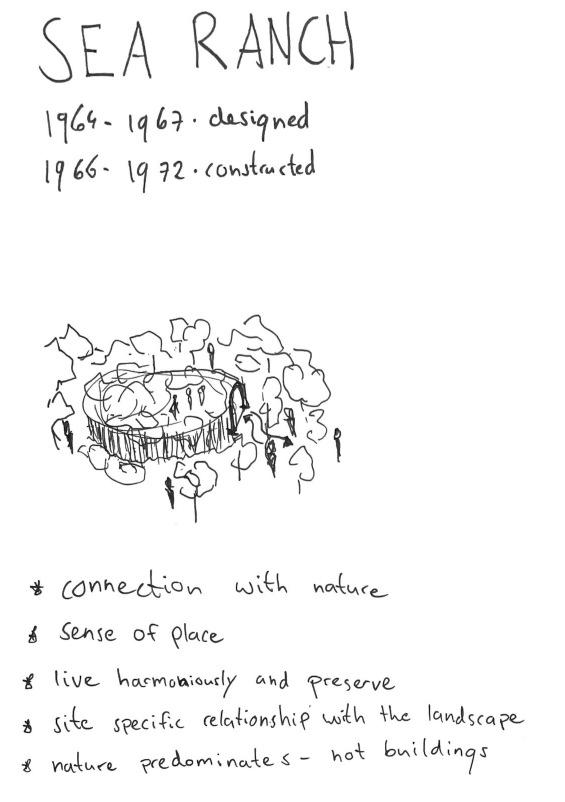 SEA RANCH
1964- 1967 · designed
1966- 1972 · constructed
* connection with nature
* sense of place
* live harmoniously and preserve
* site specific relationship with the landscape
* nature predominates - not buildings